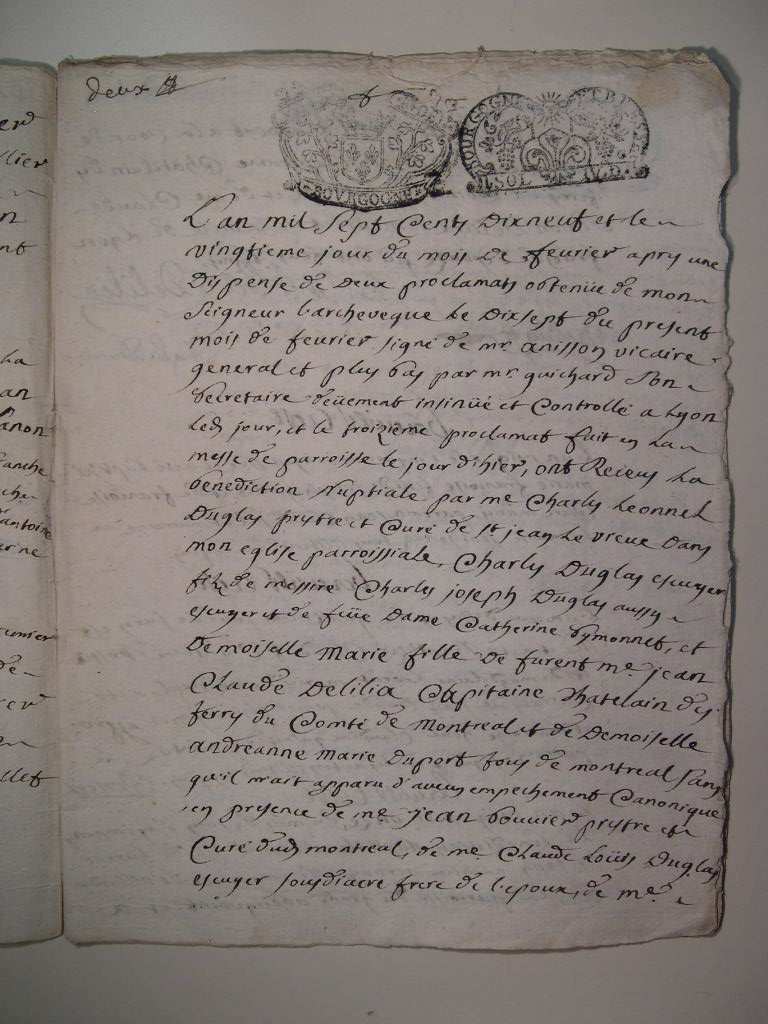 deux
BOURGOGNE
BOURGOGNE ET BRESSE
SOL IV D.
L'an mil sept cents dixneuf et le
vingtieme jour du mois de fevrier apres une
dispense de deux proclamats obtenüe de mon
seigneur l'archeveque le dixsept du present
mois de fevrier signé de mr anisson vicaire
general et plus bas par mr guichard son
secretaire deüement insinüé et controllé a Lyon
led jour, et le troizieme proclamat fait en la
messe de parroisse le jour d'hier, ont Receus la
benediction Nuptiale par me Charles Leonnel
Duglas prestre et Curé de st jean le vieux dans
mon eglise parroissiale, Charles Duglas escuyer
filz de messire Charles joseph Duglas aussy
escuyer et de füe Dame Catherine symonnet, et
Demoiselle Marie fille de furent me jean
Claude Delilia Capitaine Chatelain des
ferry du Comté de Montreal et de Demoiselle
andreanne Marie Duport tous de montreal sans
qu'il m'ait apparu d'aucun empechement Canonique
en presence de me jean bouvier prestre et
Curé dud montreal, de me Claude Loüis Duglas
escuyer sousdiacre frere de l'epoux, de me
er
lier
n
nt
la
an
anon
anche
che
antoine
erine
umier
de
rer
llet